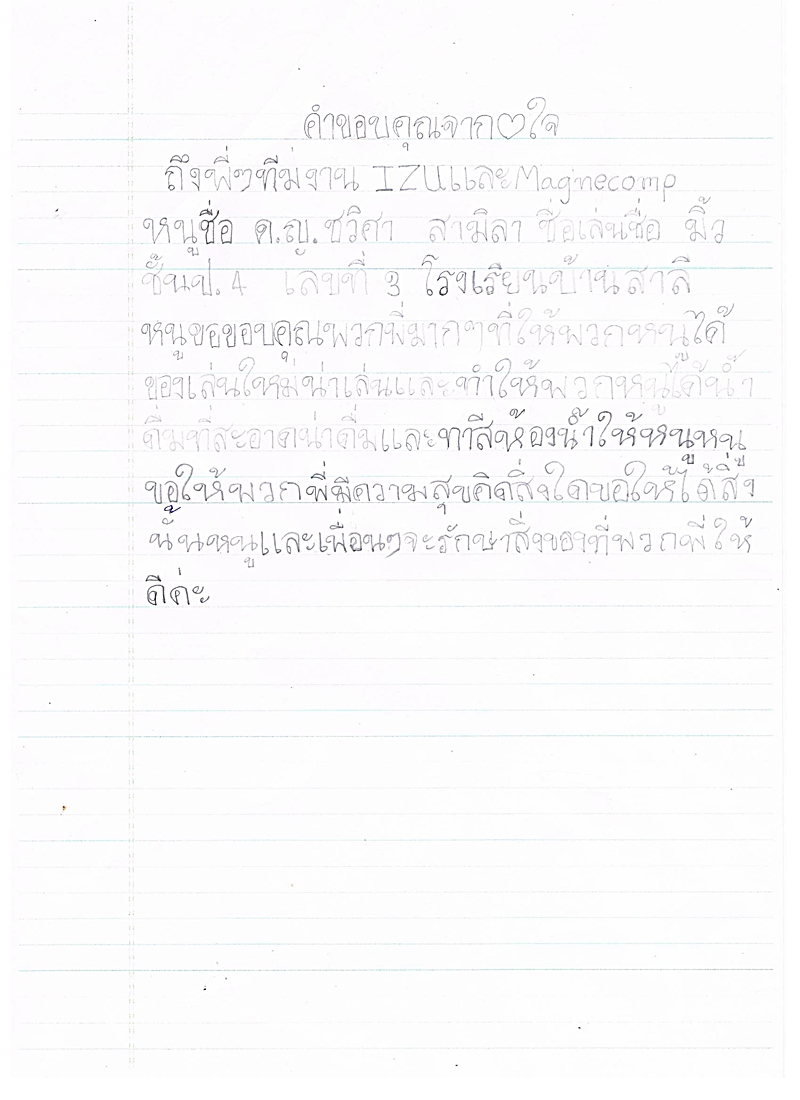 คำขอบคุณจาก♡ใจ
ถึงพี่ๆทีมงาน IZUและMagnecomp
หนูชื่อ ด.ญ.ชวิศา สามิลา ชื่อเล่นชื่อ มิ้ว
ชั้นป.4 เลขที่ 3 โรงเรียนบ้านสาลี
หนูขอขอบคุณพวกพี่มากๆที่ให้พวกหนูได้
ของเล่นใหม่น่าเล่นและทำให้พวกหนูได้น้ำ
ดื่มที่สะอาดน่าดื่มและทาสีห้องน้ำให้หนูหนู
ขอให้พวกพี่มีความสุขคิดสิ่งใดขอให้ได้สิ่ง
นั้นหนูและเพื่อนๆจะรักษาสิ่งของที่พวกพี่ให้
ดีค่ะ